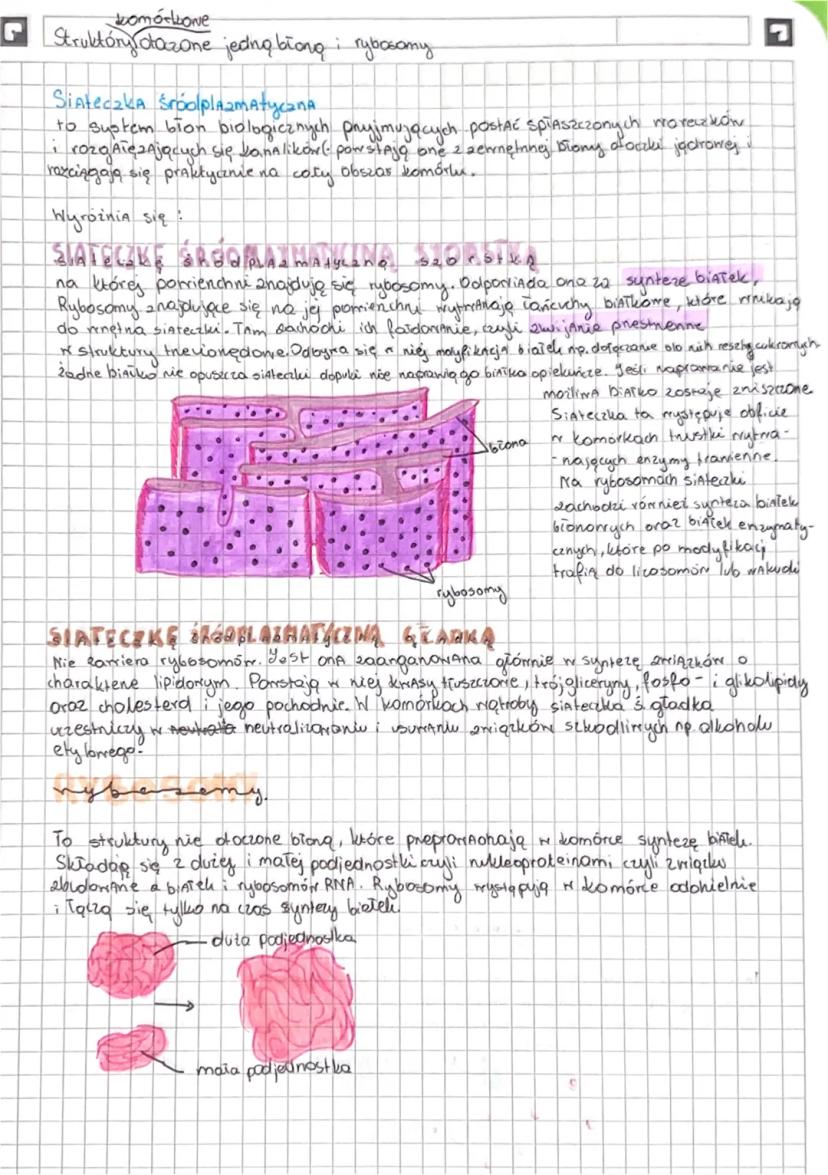 komórkowe
Struktóry otoczone jedną błoną i rybosomy
Siateczka śródplazmatyczna
to system błon biologicznych przyjmujących postać spłaszczonych woreczków
i rozgałęzających się kanalików: powstają one z zewnętnnej błony otoczki jądrowej i
rozciągają się praktycznie na cały obszar komórki.
Wyróżnia się :
SIATECZKĘ ŚRÓDPLAZMATYCZNĄ SZORSTKĄ
na której powierzchni znajdują się rybosomy. Odpowiada ona za syntezę białek.
Rybosomy znajdujące się na jej powierzchni wytwarzają łańcuchy białkowe, które wnikają
do wnętrza siateczki. Tam zachodzi ich fałdowanie, czyli zwijanie przestrzenne
w struktury trzeciorzędowe. Odbywa się w niej modyfikacja białek np. dołączanie do nich reszty cukrowych
żadne białko nie opuszcza siateczki dopuki nie naprawią go białka opiekuńcze. Jeśli naprawanie jest
możliwa białko zostaje zniszczone
Siateczka ta występuje obficie
w komórkach trustki wytwa-
-rzających enzymy trawienne.
Na rybosomach siateczki
zachodzi również synteza białek
błonowych oraz białek enzymaty-
cznych, które po modyfikacji
trafią do lizosomów lub wakuoli
błona
rybosomy
SIATECZKĘ ŚRÓDPLAZMATYCZNĄ GŁADKĄ
Nie zawiera rybosomów. Jest ona zaangażowana głównie w syntezę związków o
charakterze lipidowym. Powstają w niej kwasy tłuszczowe, trójgliceryny, fosfo- i glikolipidy
oraz cholesterol i jego pochodnie. W komórkach wątroby siateczka ś. gładka
uczestniczy w neutrali neutralizowaniu i usuwaniu związków szkodliwych np. alkoholu
etylowego.
rybosomy.
To struktury nie otoczone błoną, które przeprowadzają w komórce syntezę białek.
Składają się z dużej i małej podjednostki czyli nukleoproteinami czyli związki
zbudowane z białek i rybosomów RNA. Rybosomy występują w komórce oddzielnie
i łączą się tylko na czas syntezy białek.
duża podjednostka
mała podjednostka